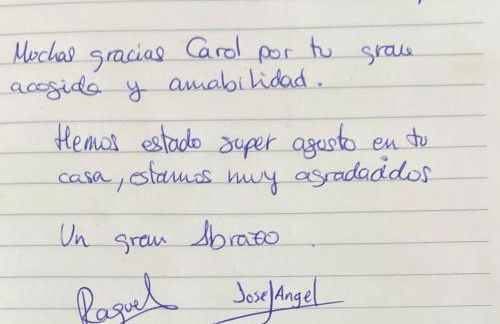 Muchas gracias Carol por tu gran
acogida y amabilidad.
Hemos estado super agusto en tu
casa, estamos muy agradacidos
Un gran Abrazo.
Raquel JoseAngel